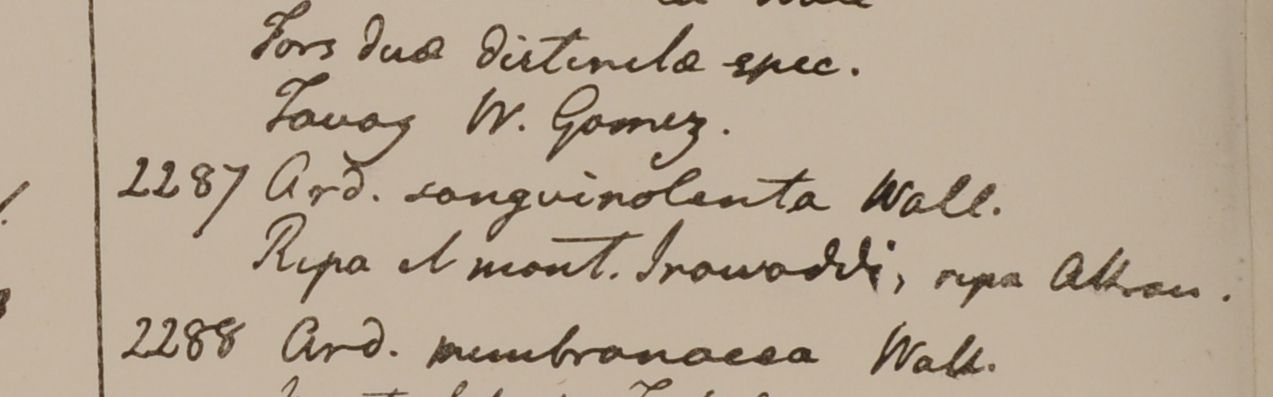 Fors duæ distinctæ spec.
Tavoy W. Gomez.
2287 Ard. sanguinolenta Wall.
Ripa et mont. Irawaddi, ripa Attran.
2288 Ard. membranacea Wall.